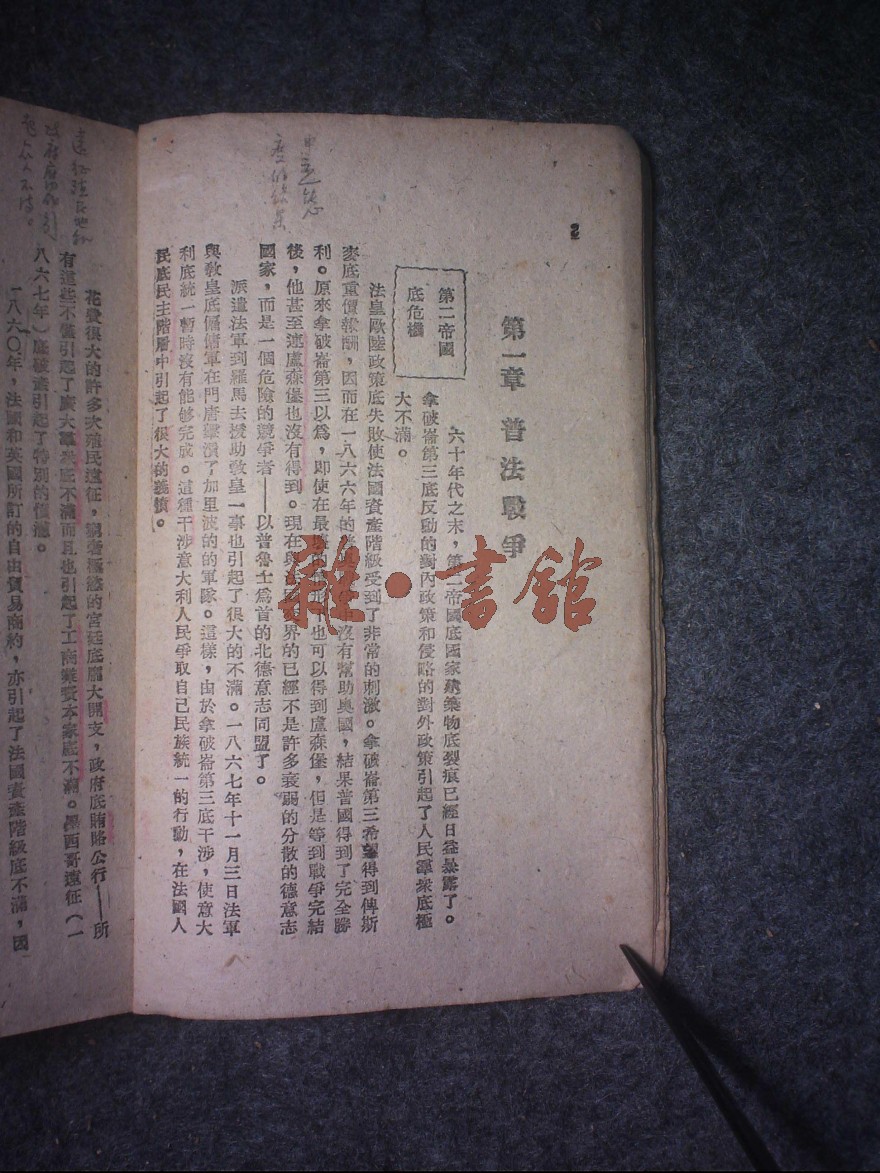 2
第一章 普法戰爭
第二帝國
底危機
六十年代之末，第二帝國底國家建築物底裂痕已經日益暴露了。
拿破崙第三底反動的對內政策和侵略的對外政策引起了人民羣衆底極
大不滿。
法皇歐陸政策底失敗使法國資產階級受到了非常的刺激。拿破崙第三希望得到俾斯
麥底重價報酬，因而在一八六六年的沒有幫助奧國，結果普國得到了完全勝
利。原來拿破崙第三以爲，即使在最也可以得到盧森堡，但是等到戰爭完結
後，他甚至連盧森堡也沒有得到。現在與界的已經不是許多衰弱的分散的德意志
國家，而是一個危險的競爭者——以普魯士爲首的北德意志同盟了。
派遣法軍到羅馬去援助敎皇一事也引起了很大的不滿。一八六七年十一月三日法軍
與敎皇底傭僱軍在門唐擊潰了加里波的的軍隊。這樣，由於拿破崙第三底干涉，使意大
利底統一暫時沒有能够完成。這種干涉意大利人民爭取自己民族統一的行動，在法國人
民底民主階層中引起了很大的義憤。
花費很大的許多次殖民遠征，窮奢極慾的宮廷底龐大開支，政府底賄賂公行——所
有這些不僅引起了廣大羣衆底不滿而且也引起了工商業資本家底不滿。墨西哥遠征（一
八六七年）底破產引起了特別的憤慨。
一八六〇年，法國和英國所訂的自由貿易商約，亦引起了法國資產階級底不滿，因
雜·書館